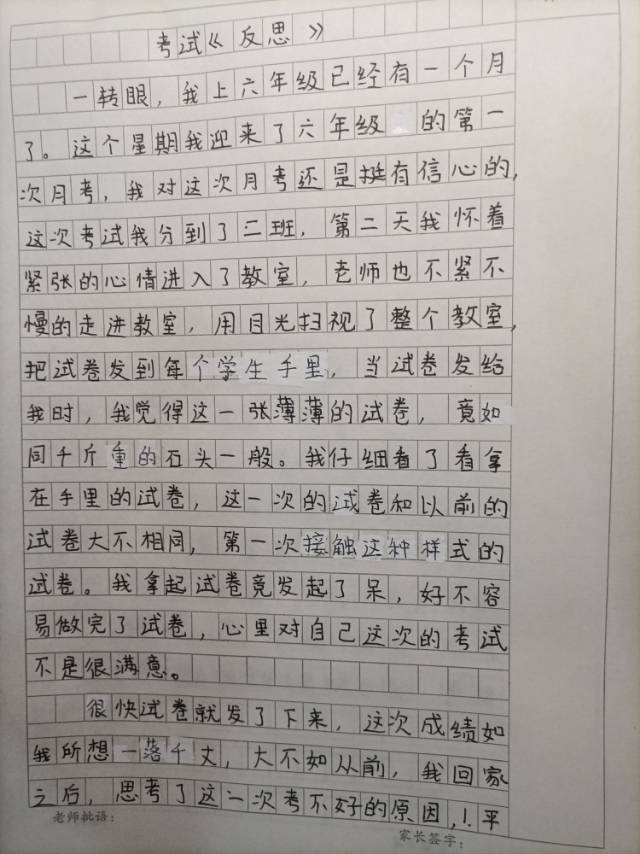 考试《反思》
一转眼，我上六年级已经有一个月
了。这个星期我迎来了六年级的第一
次月考，我对这次月考还是挺有信心的，
这次考试我分到了二班，第二天我怀着
紧张的心情进入了教室，老师也不紧不
慢的走进教室，用目光扫视了整个教室，
把试卷发到每个学生手里，当试卷发给
我时，我觉得这一张薄薄的试卷，竟如
同千斤重的石头一般。我仔细看了看拿
在手里的试卷，这一次的试卷和以前的
试卷大不相同，第一次接触这种样式的
试卷。我拿起试卷竟发起了呆，好不容
易做完了试卷，心里对自己这次的考试
不是很满意。
很快试卷就发了下来，这次成绩如
我所想一落千丈，大不如从前，我回家
之后，思考了这一次考不好的原因，1.平
老师批语：
家长签字：